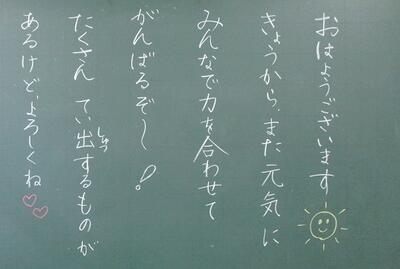 おはようございます
きょうから、また元気に
みんなで力を合わせて
がんばるぞ〜！
たくさん てい出するものが
しゅつ
あるけど、よろしくね